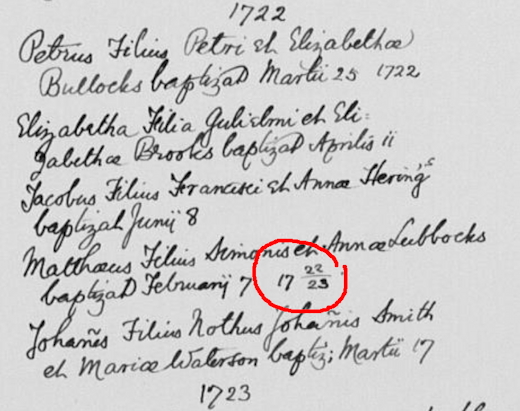 1722
Petrus Filius Petri et Elizabethæ
Bullocks baptizat Martii 25 1722
Elizabetha Filia Gulielmi et Eli=
zabethæ Brooks baptizat Aprilis ii
Jacobus Filius Francisci et Annæ Hering's
baptizat Junij 8
Matthæus Filius Simonis et Annæ Lubbocks
baptizat Februarij 7 17 22/23
Johañes Filius Nothus Johañis Smith
et Mariæ Waterson baptiz; Martii 17
1723